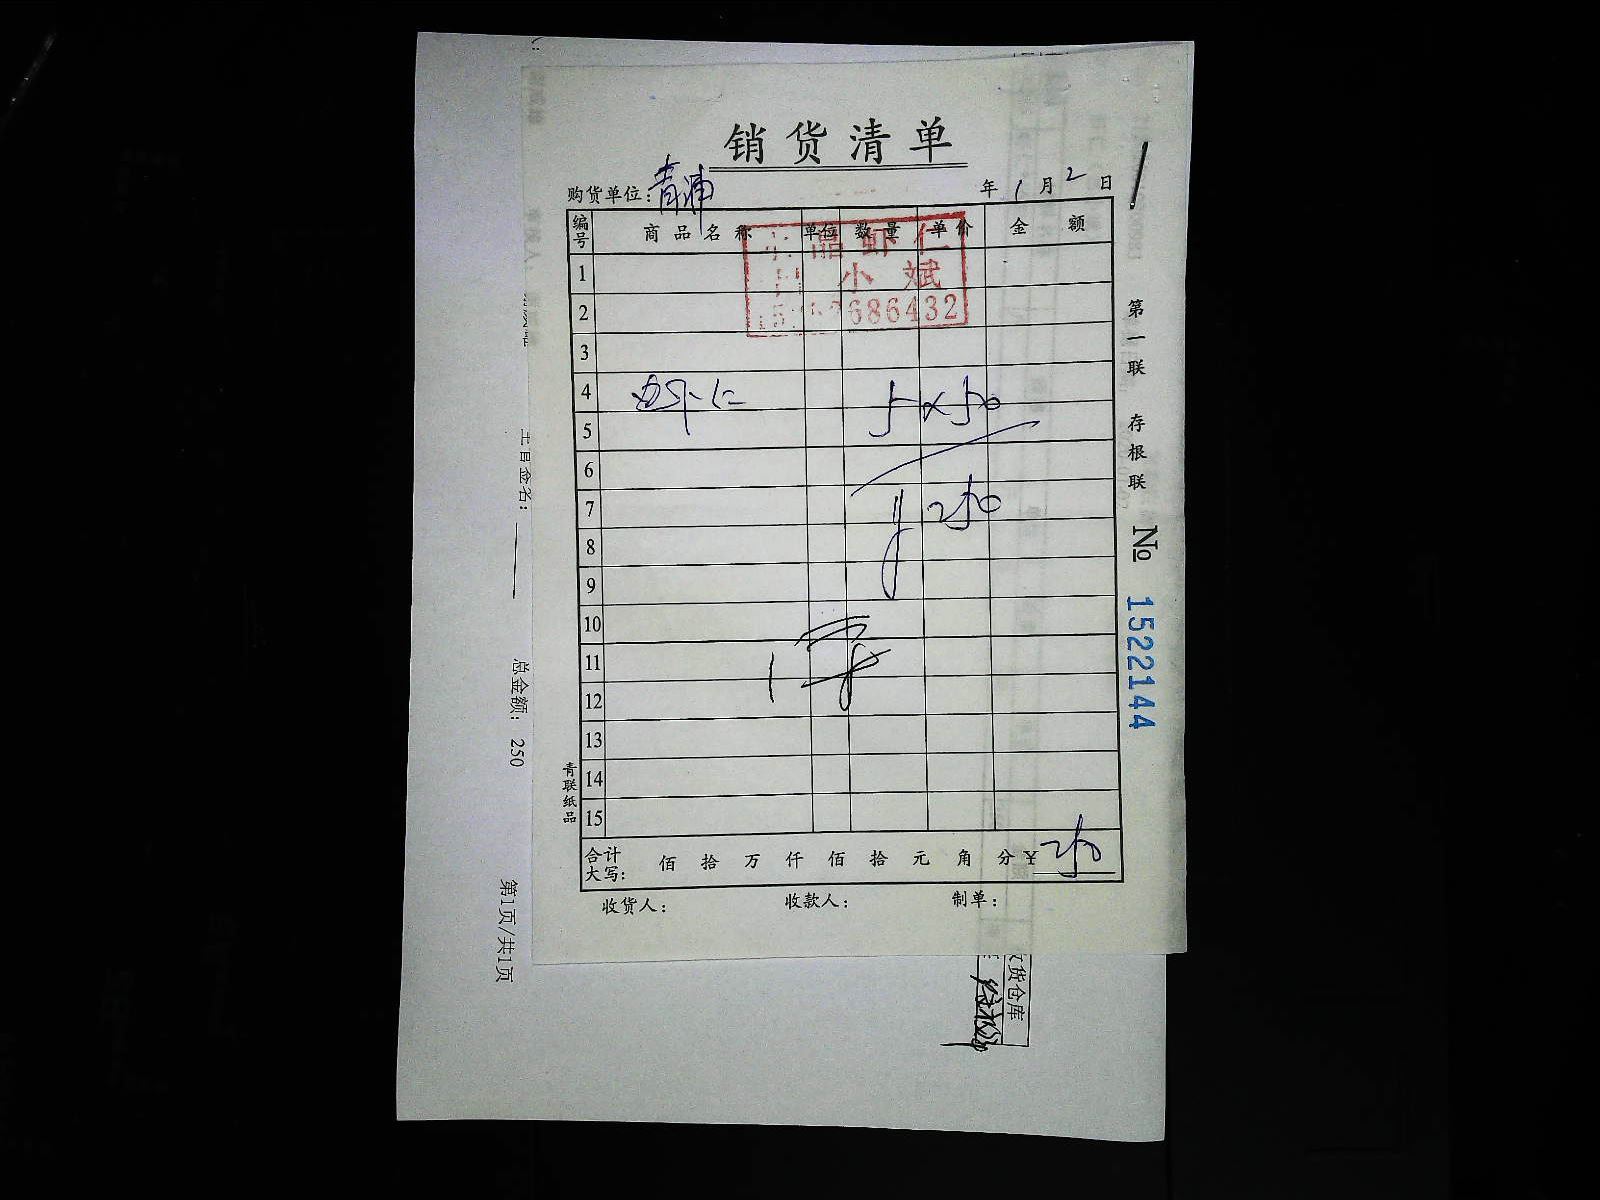 销货清单
购货单位：青浦 年 1 月 2 日
编号 商品名称 单位 数量 单价 金额
晶虾仁
小斌
686432
1
2
3
4 虾仁 5×50
5
6
7 ¥250
8
9
10
11
12
13
14
15
合计大写： 佰 拾 万 仟 佰 拾 元 角 分 ¥250
收货人： 收款人： 制单：
青联纸品
第一联 存根联 № 1522144
主管签名：
总金额： 250
第1页/共1页
收货仓库